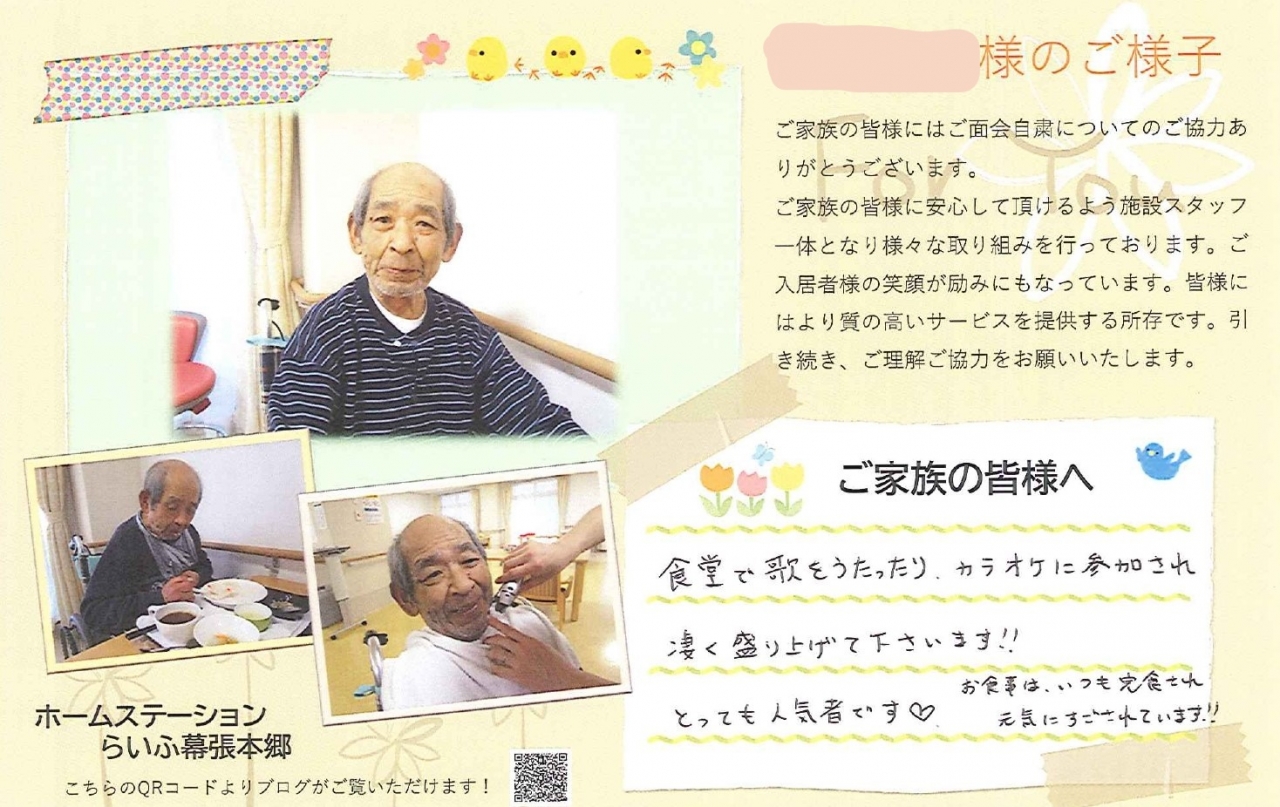 様のご様子
ご家族の皆様にはご面会自粛についてのご協力あ
りがとうございます。
ご家族の皆様に安心して頂けるよう施設スタッフ
一体となり様々な取り組みを行っております。ご
入居者様の笑顔が励みにもなっています。皆様に
はより質の高いサービスを提供する所存です。引
き続き、ご理解ご協力をお願いいたします。
For You
ご家族の皆様へ
食堂で歌をうたったり、カラオケに参加され
凄く盛り上げて下さいます!!
とっても人気者です♡
お食事は、いつも完食され
元気にすごされています!!
ホームステーション
らいふ幕張本郷
こちらのQRコードよりブログがご覧いただけます！